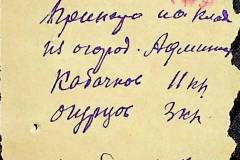 Принято на клад
из огород. Админи
Кабачков 11 кг
огурцов 3 кг